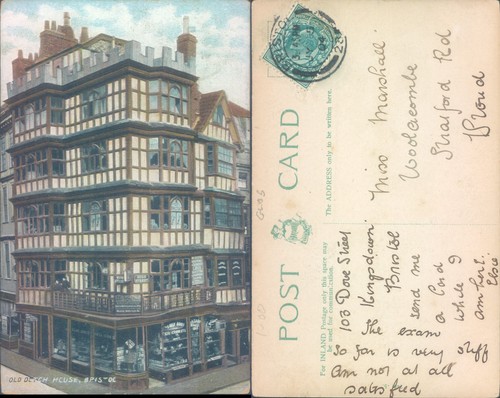 OLD DUTCH HOUSE, BRISTOL
BRISTOL
POST CARD
The ADDRESS only to be written here.
For INLAND Postage only this space may
be used for communication.
Miss Marshall
Woolacombe
Stratford Rd
Stroud
GLOS
103 Dove Street
Kingsdown
Bristol
send me
a Card
while I
am here.
Elsie
The exam
so far is very stiff
Am not at all
satisfied